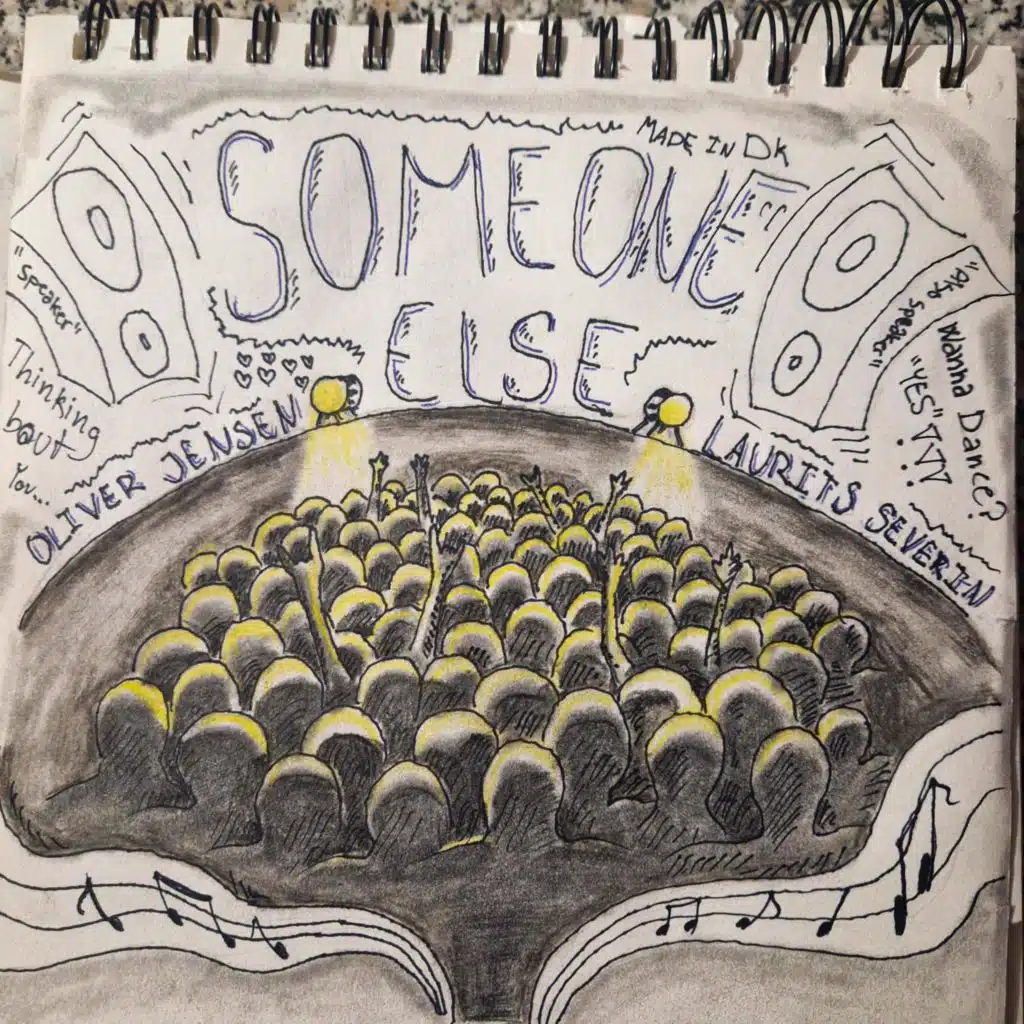 MADE IN DK
SOMEONE
ELSE
"Speaker"
Thinking
bout
You...
OLIVER JENSEN
LAURITS SEVERIN
Speaker"
"YES"
Wanna Dance?